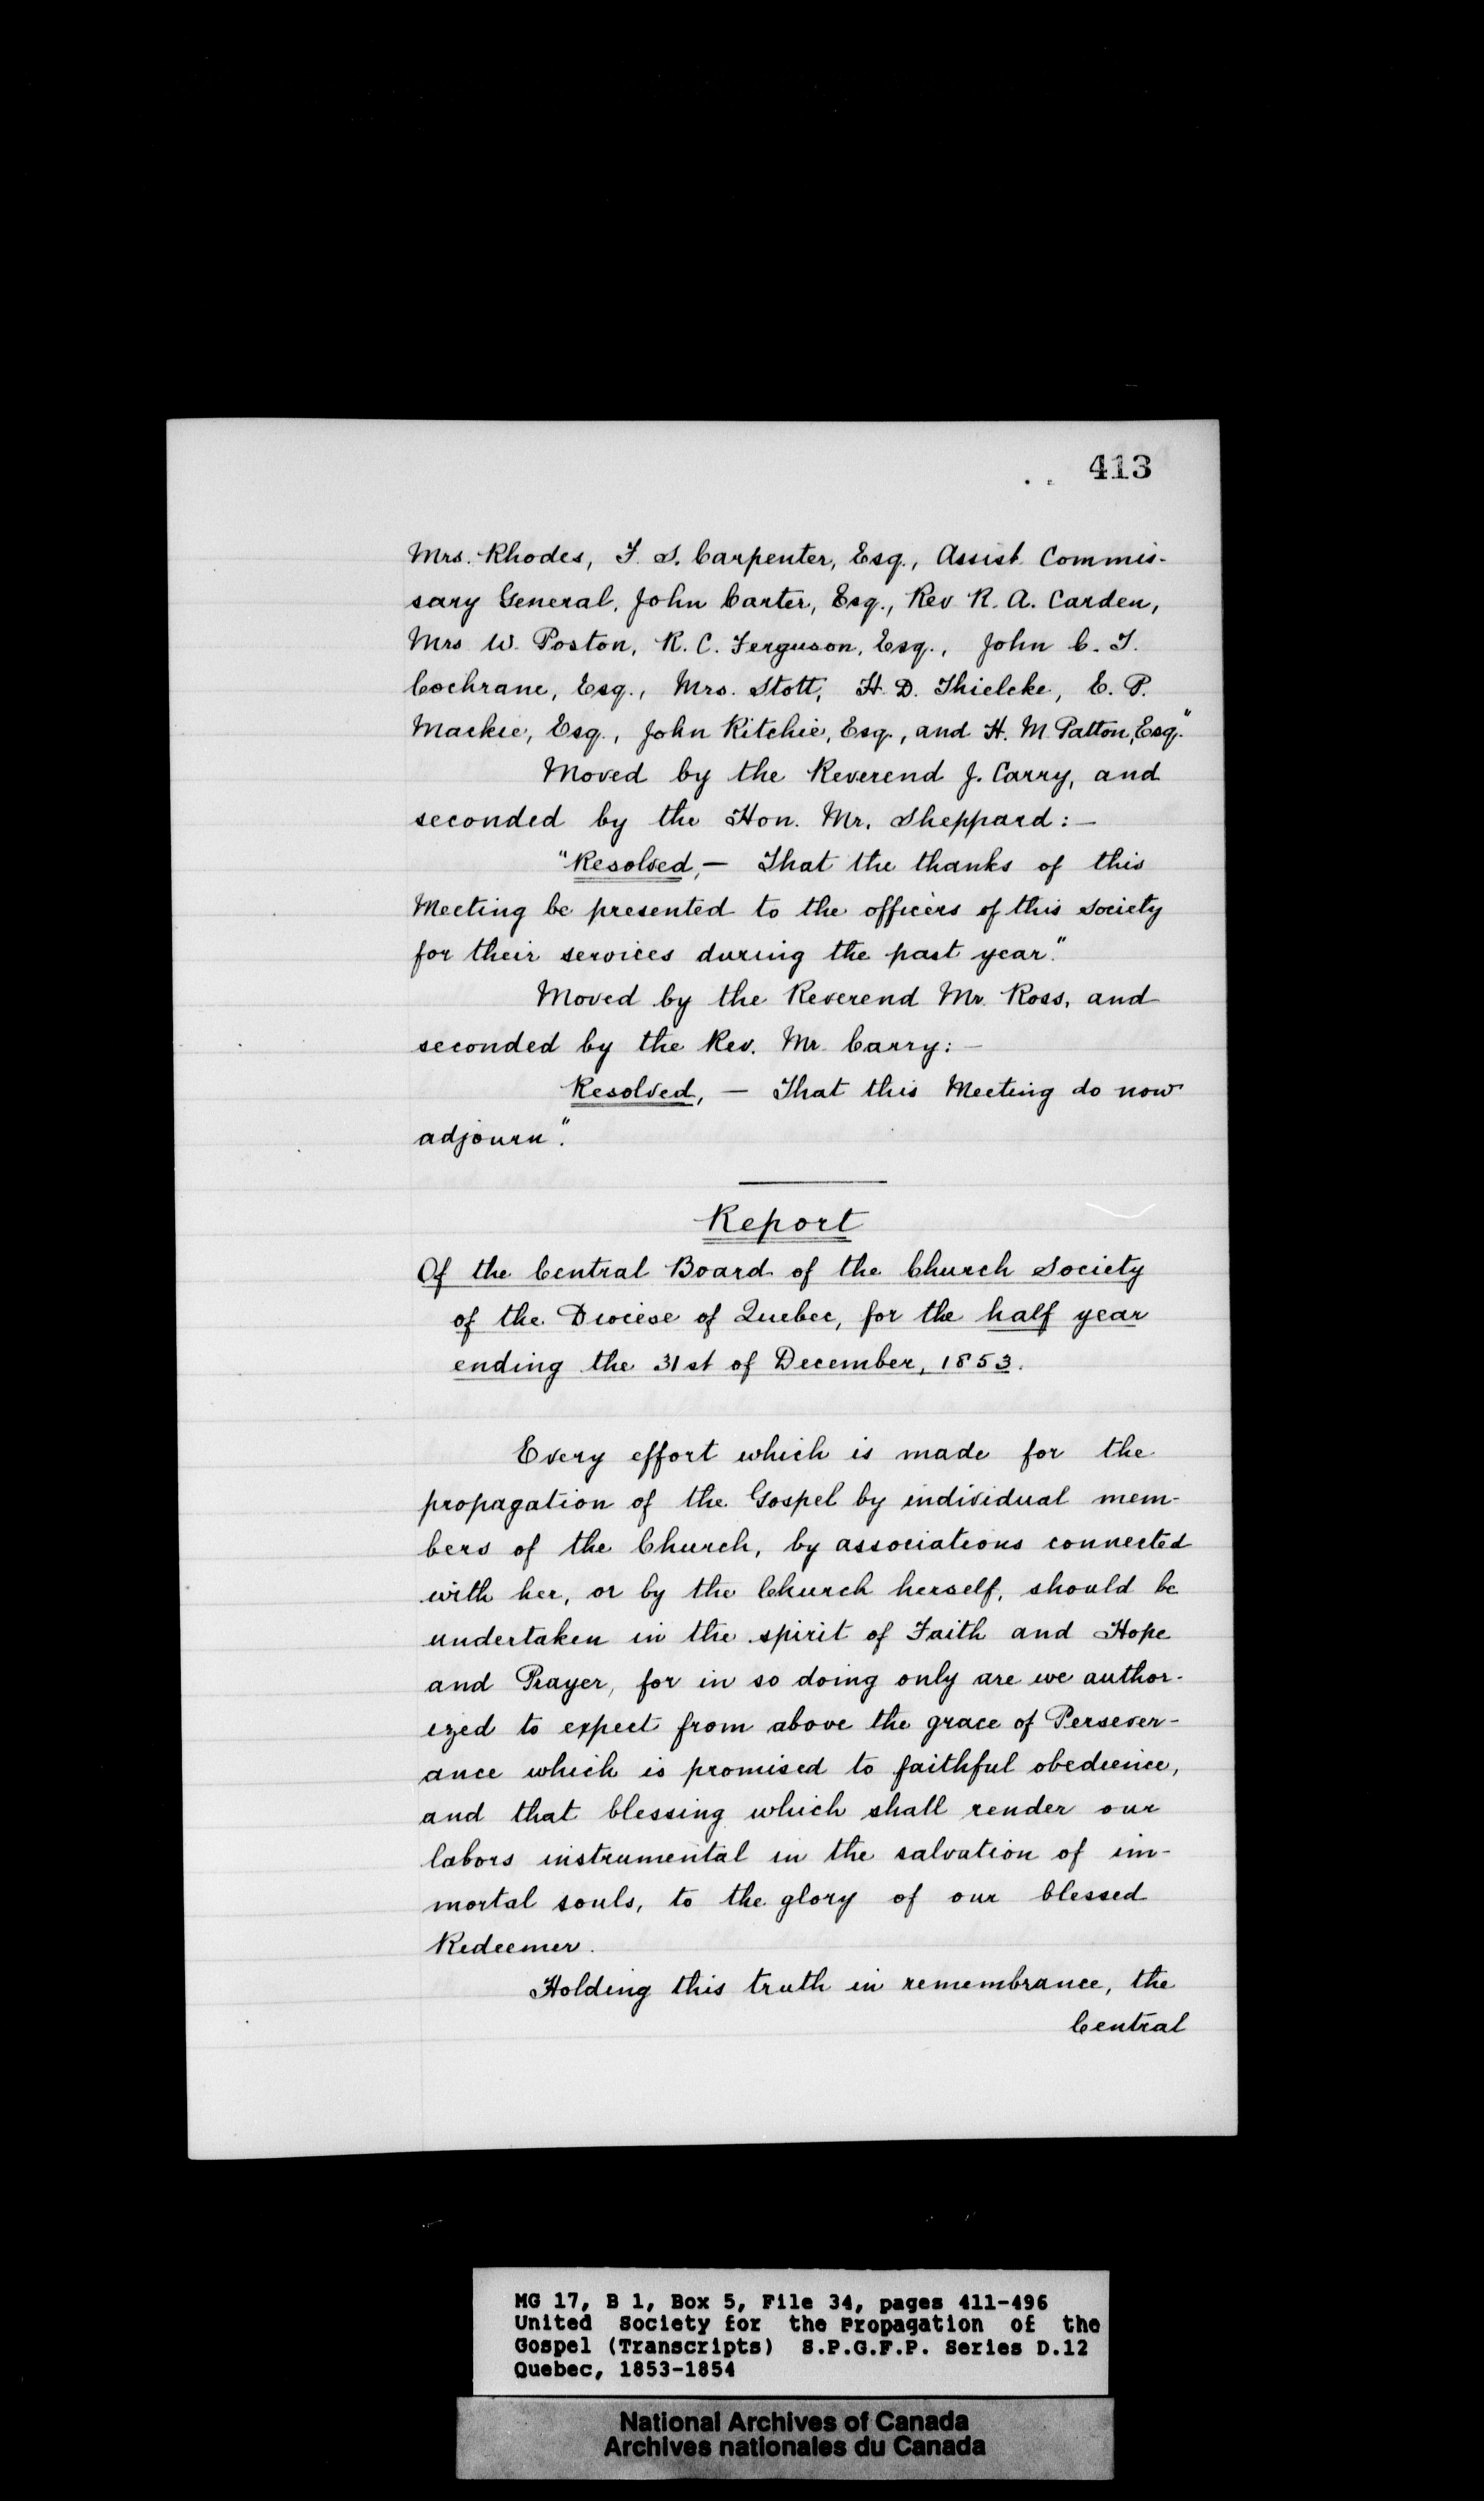 413
Mrs. Rhodes, F. S. Carpenter, Esq., Assist. Commis-
sary General, John Carter, Esq., Rev R. A. Carden,
Mrs W. Poston, R. C. Ferguson, Esq., John C. T.
Cochrane, Esq., Mrs. Stott, H. D. Thielcke, E. P.
Mackie, Esq., John Ritchie, Esq., and H. M. Patton, Esq."
Moved by the Reverend J. Carry, and
seconded by the Hon. Mr. Sheppard:—
"Resolved,— That the thanks of this
Meeting be presented to the officers of this Society
for their services during the past year."
Moved by the Reverend Mr. Ross, and
seconded by the Rev. Mr. Carry:—
Resolved, — That this Meeting do now
adjourn".
Report
Of the Central Board of the Church Society
of the Diocese of Quebec, for the half year
ending the 31st of December, 1853.
Every effort which is made for the
propagation of the Gospel by individual mem-
bers of the Church, by associations connected
with her, or by the Church herself, should be
undertaken in the spirit of Faith and Hope
and Prayer, for in so doing only are we author-
ized to expect from above the grace of Persever-
ance which is promised to faithful obedience,
and that blessing which shall render our
labors instrumental in the salvation of im-
mortal souls, to the glory of our blessed
Redeemer.
Holding this truth in remembrance, the
Central
MG 17, B 1, Box 5, File 34, pages 411-496
United Society for the Propagation of the
Gospel (Transcripts) S.P.G.F.P. Series D.12
Quebec, 1853-1854
National Archives of Canada
Archives nationales du Canada